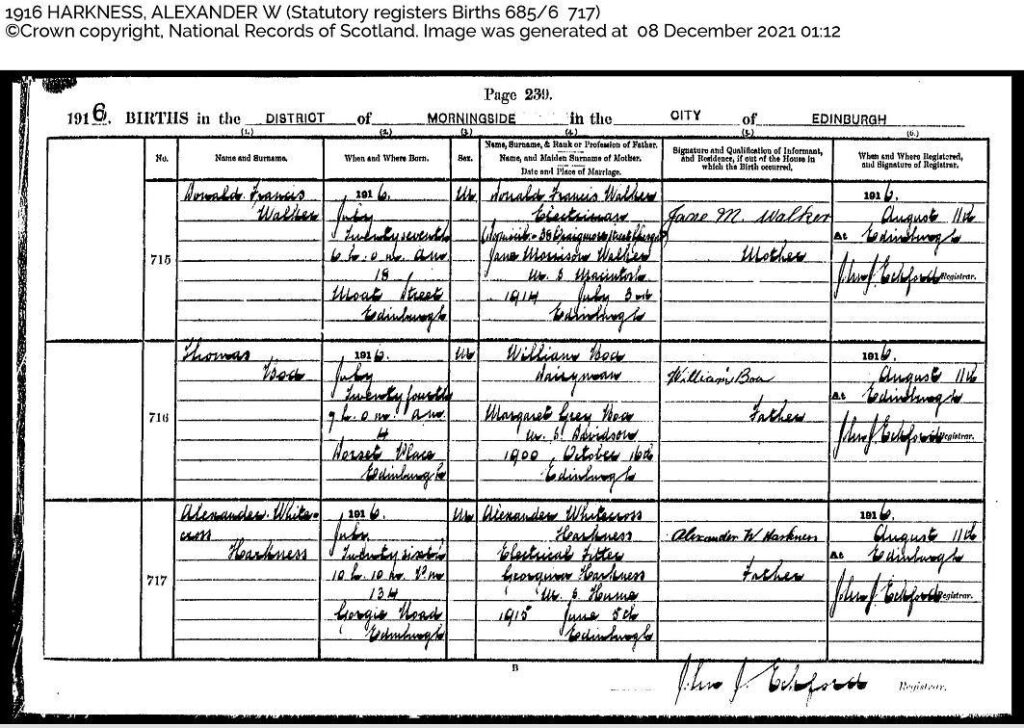 1916 HARKNESS, ALEXANDER W (Statutory registers Births 685/6 717)
©Crown copyright, National Records of Scotland. Image was generated at 08 December 2021 01:12
Page 239.
1916. BIRTHS in the DISTRICT of MORNINGSIDE in the CITY of EDINBURGH
(1.) (2.) (3.) (4.) (5.) (6.)
No.
Name and Surname.
When and Where Born.
Sex.
Name, Surname, & Rank or Profession of Father.
Name, and Maiden Surname of Mother.
Date and Place of Marriage.
Signature and Qualification of Informant,
and Residence, if out of the House in
which the Birth occurred.
When and Where Registered,
and Signature of Registrar.
715
Donald Francis
Walker
1916.
July
Twenty seventh
6 h. 0 m. a m
18
Moat Street
Edinburgh
M
Donald Francis Walker
Electrician
Jane Morrison Walker
m. s. Macintosh
1914 July 3rd
Edinburgh
Jane M. Walker
Mother
1916.
August 11th
At Edinburgh
John J. Eckford Registrar.
716
Thomas
Boa
1916.
July
Twenty fourth
9 h. 0 m. a m
4
Dorset Place
Edinburgh
M
William Boa
Dairyman
Margaret Grey Boa
m. s. Davidson
1900, October 16th
Edinburgh
William Boa
Father
1916.
August 11th
At Edinburgh
John J. Eckford Registrar.
717
Alexander White-
cross
Harkness
1916.
July
Twenty sixth
10 h. 10 m. P m
134
Gorgie Road
Edinburgh
M
Alexander Whitecross
Harkness
Electrical Fitter
Georgina Harkness
m. s. Hume
1915 June 5th
Edinburgh
Alexander W Harkness
Father
1916.
August 11th
At Edinburgh
John J. Eckford Registrar.
B
John J. Eckford Registrar.